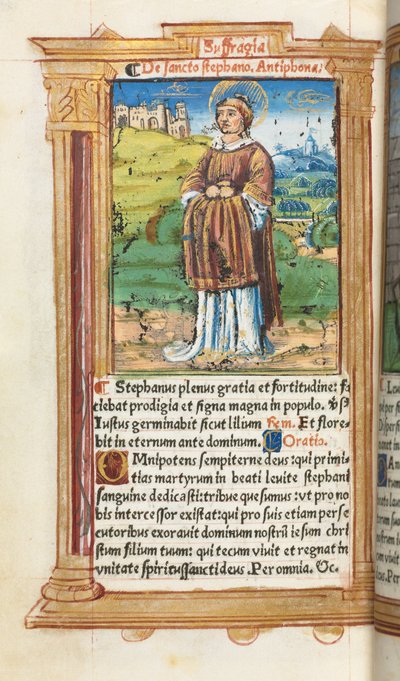 Suffragia
De sancto stephano. Antiphona;
Stephanus plenus gratia et fortitudine: fa
ciebat prodigia et signa magna in populo. ℣.
Iustus germinabit sicut lilium Rem. Et flore
bit in eternum ante dominum. Oratio.
OMnipotens sempiterne deus: qui primi
tias martyrum in beati leuite stephani
sanguine dedicasti: tribue quesumus: vt pro no
bis intercessor existat: qui pro suis etiam perse
cutoribus exorauit dominum nostrũ iesum chri
stum filium tuum: qui tecum viuit et regnat in
vnitate spiritussancti deus. Per omnia. ⁊c.